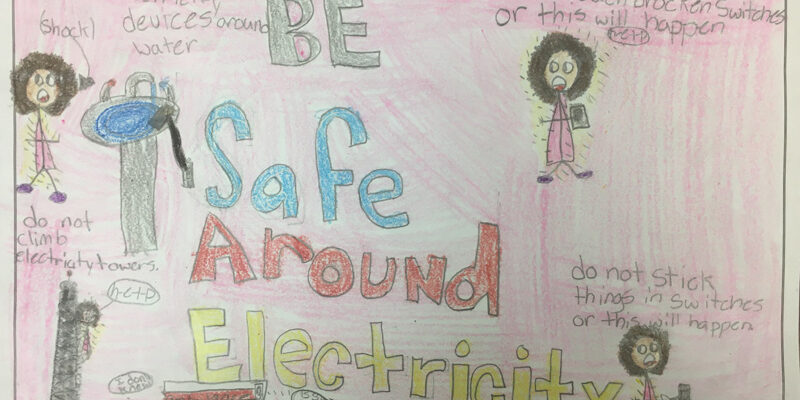 (shock)
devices around
water
BE
Safe
Around
Electricity
brocken switches
or this will happen
help
do not
climb
electricity towers.
help
do not stick
things in switches
or this will happen